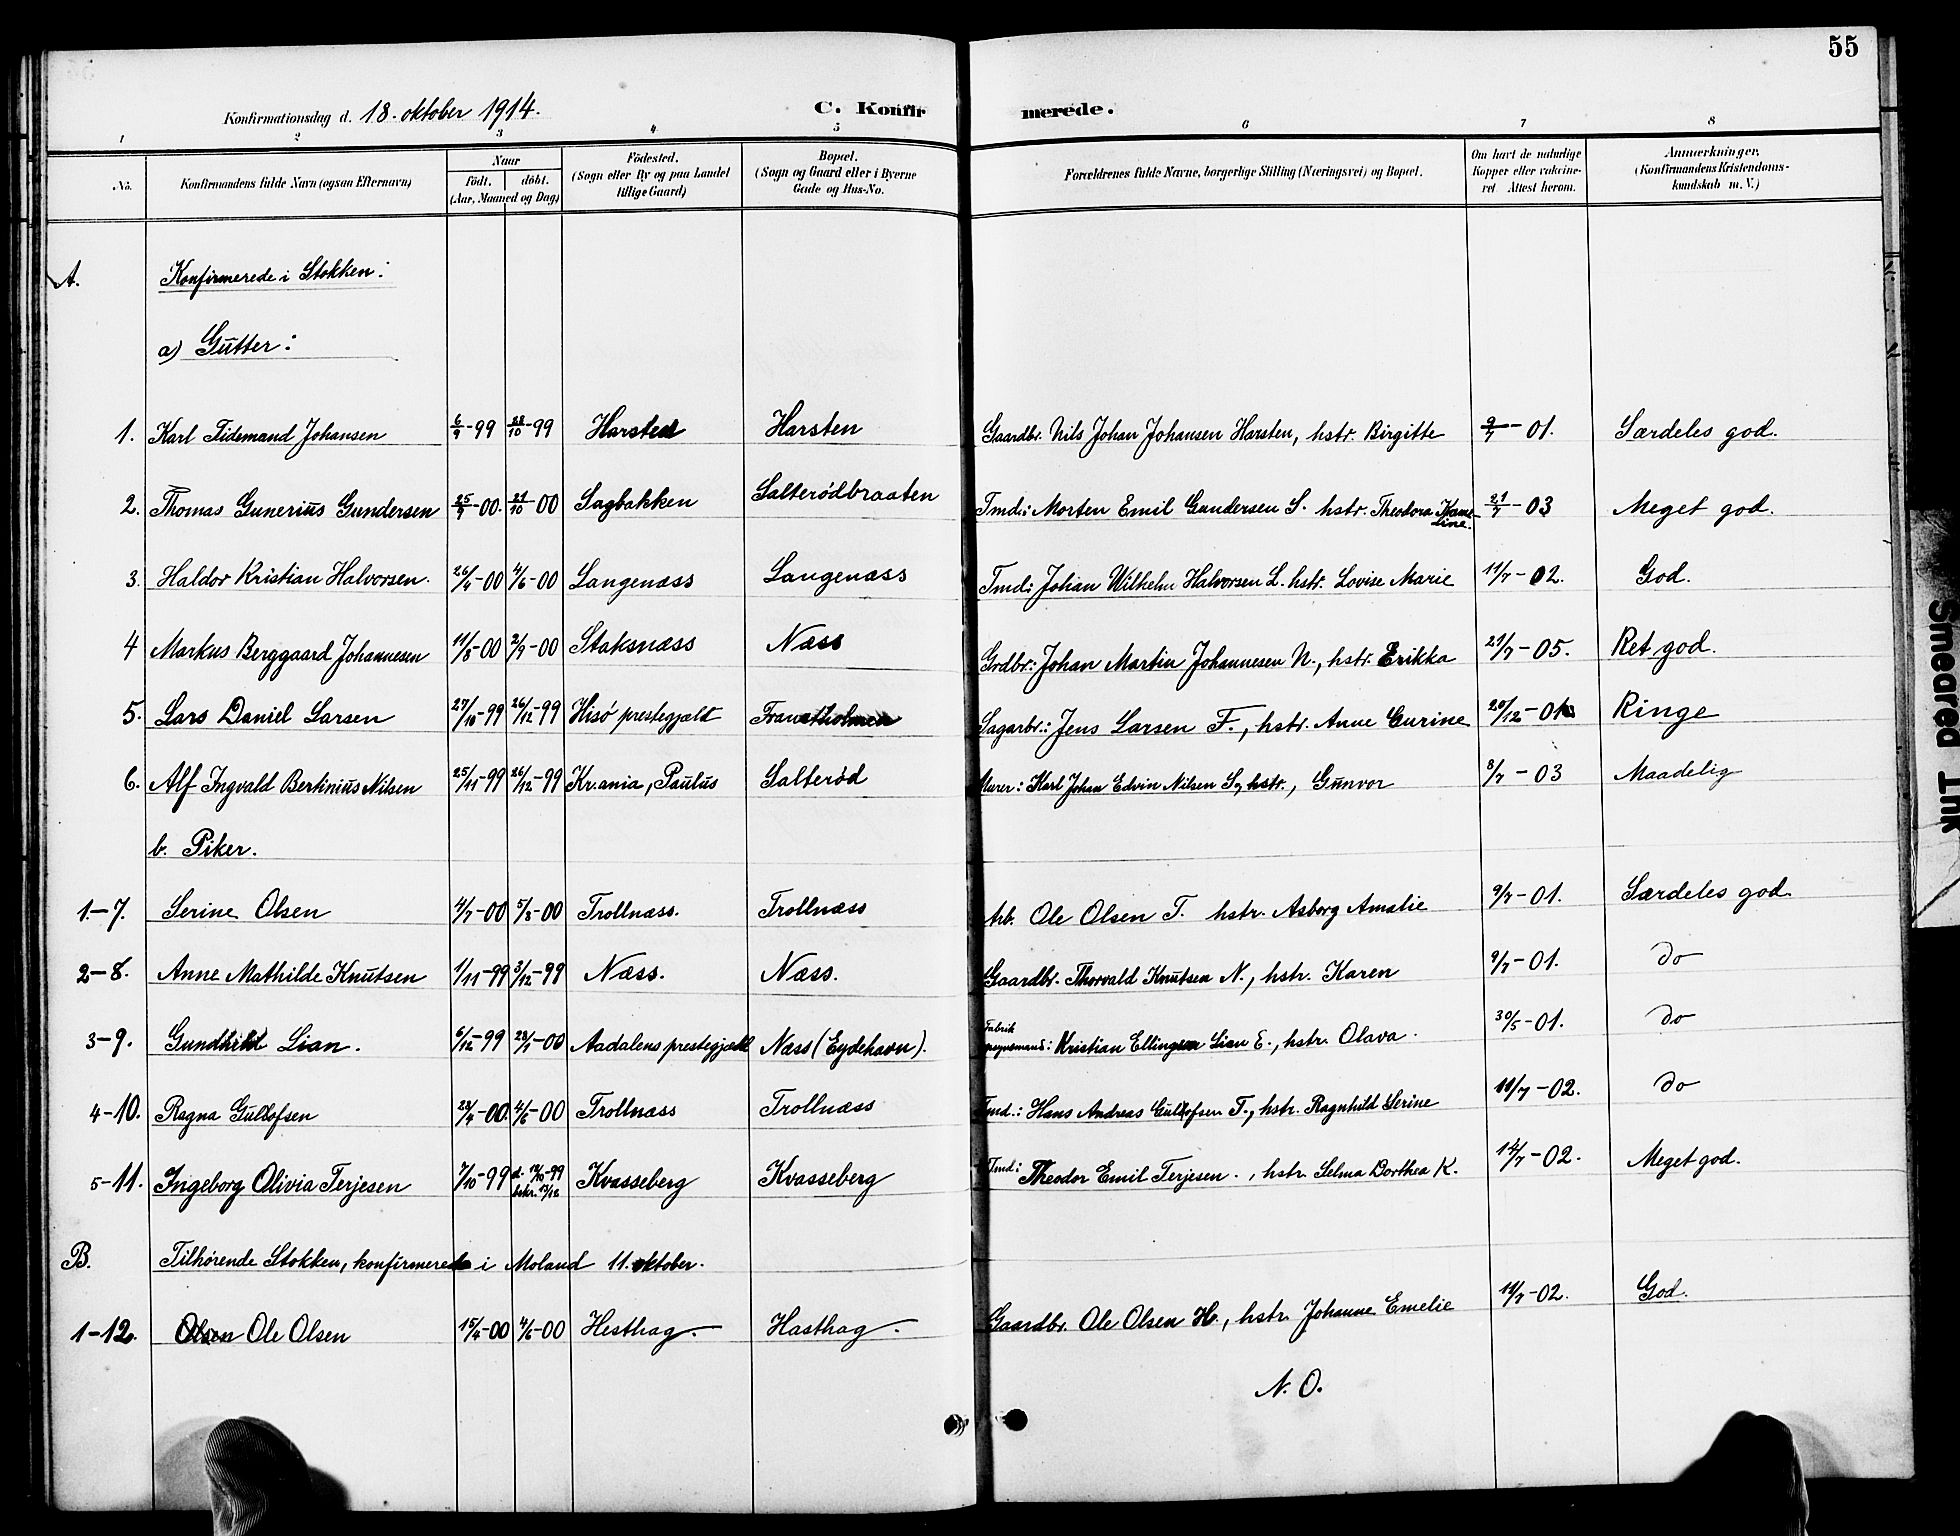 55
Konfirmationsdag d. 18. oktober 1914.
C. Konfirmerede.
1 2 3 4 5 6 7 8
No. Konfirmandens fulde Navn (ogsaa Efternavn) Naar Födt. döbt. (Aar, Maaned og Dag) Födested. (Sogn eller By og paa Landet tillige Gaard) Bopæl. (Sogn og Gaard eller i Byerne Gade og Hus-No. Forældrenes fulde Navne, borgerlige Stilling (Næringsvei) og Bopæl. Om havt de naturlige Kopper eller vakcineret Attest herom. Anmærkninger. (Konfirmandens Kristendomskundskab m. V.)
A. Konfirmerede i Stokken:
a) Gutter:
1. Karl Tidemand Johansen 6/9-99 28/10-99 Harsten Harsten Gaardbr. Nils Johan Johansen Harsten, hstr. Birgitte 9/7-01. Særdeles god.
2. Thomas Gunerius Gundersen 25/7-00. 21/10-00 Sagbakken Salterødbraaten Tmd: Morten Emil Gundersen S. hstr. Theodora 21/7-03 Meget god.
3. Haldor Kristian Halvorsen. 26/4-00 4/6-00 Langenæss Langenæss Tmd: Johan Wilhelm Halvorsen L. hstr. Lovise Marie 11/7-02. God.
4 Markus Berggaard Johannesen 11/8-00 2/9-00 Staksnæss Næss Grdbr: Johan Martin Johannesen N., hstr. Erikka 21/7-05. Ret god.
5. Lars Daniel Larsen 27/10-99 26/12-99 Hisø prestegjæld Sagarb.: Jens Larsen F., hstr. Anne Gurine 20/12-01 Ringe
6. Alf Ingvald Bertinius Nilsen 25/11-99 26/12-99 Kr.ania, Paulus Salterød Murer: Karl Johan Edvin Nilsen S., hstr., Gunvor 8/7-03 Maadelig
b. Piker.
1-7. Serine Olsen 4/7-00 5/8-00 Trollnæss. Trollnæss Arb. Ole Olsen T. hstr. Asborg Amalie 9/7-01. Særdeles god.
2-8. Anne Mathilde Knutsen 1/11-99 3/12-99 Næss. Næss. Gaardbr. Thorvald Knutsen N., hstr. Karen 9/7-01. do
3-9. Gundhild Lian. 6/12-99 28/1-00 Aadalens prestegjæld Næss (Eydehavn). Fabrik Kristian Ellingsen Lian E., hstr. Olava. 30/5-01. do
4-10. Ragna Gullofsen 28/4-00. 4/6-00 Trollnæss Trollnæss Tmd.: Hans Andreas Gullofsen T., hstr. Ragnhild Serine 11/7-02. do
5-11. Ingeborg Olivia Terjesen 7/10-99 Kvasseberg Kvasseberg Tmd: Theodor Emil Terjesen., hstr. Selma Dorthea K. 14/7-02. Meget god.
B. Tilhørende Stokken, konfirmerede i Moland 11. oktober.
1-12. Ole Olsen 15/4-00 4/6-00 Hesthag. Hasthag. Gaardbr. Ole Olsen H., hstr. Johanne Emelie 11/7-02. God.
N. O.
Smeared Ink